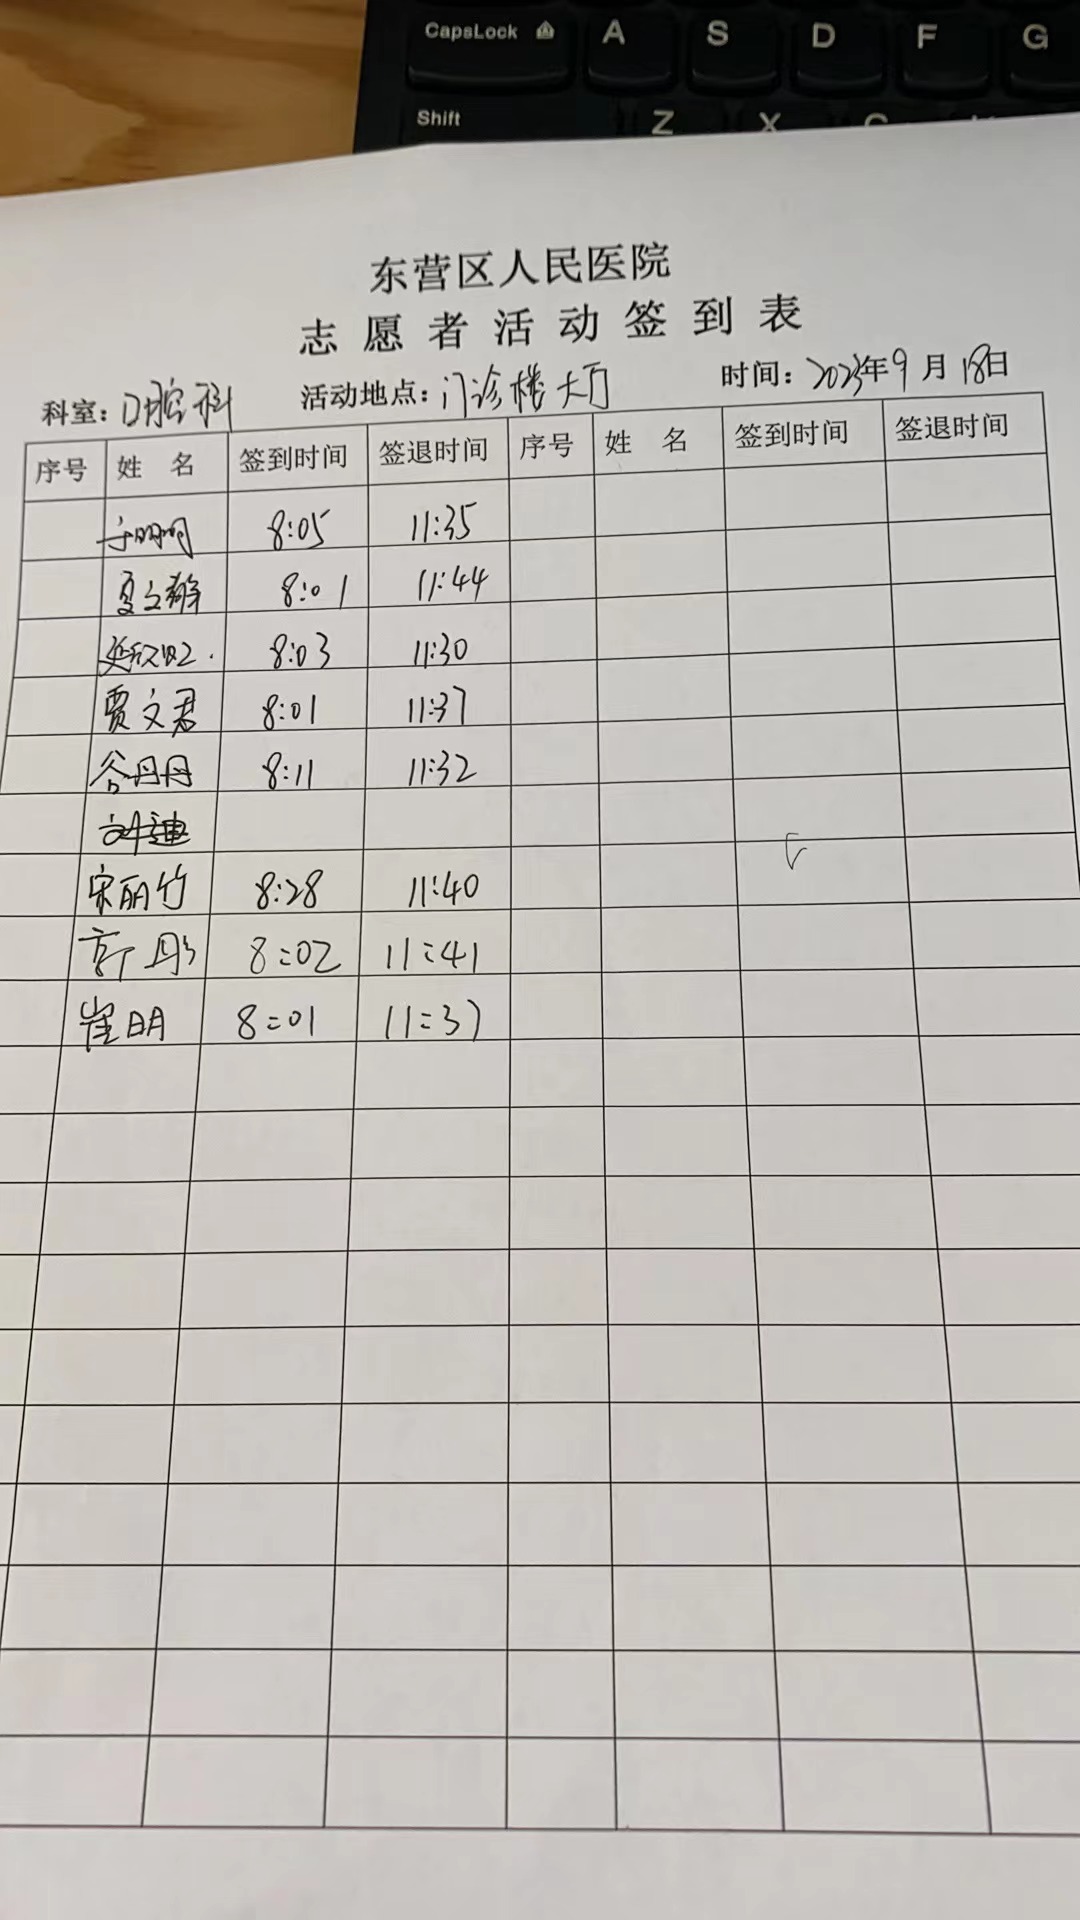 CapsLock A S D F G
Shift Z X C
东营区人民医院
志愿者活动签到表
科室：口腔科 活动地点：门诊楼大厅 时间：2023年9月18日
序号 姓名 签到时间 签退时间 序号 姓名 签到时间 签退时间
8:05 11:35
夏文 8:01 11:44
8:03 11:30
贾文君 8:01 11:37
谷丹丹 8:11 11:32
宋丽竹 8:28 11:40
8:02 11:41
崔明 8:01 11:37